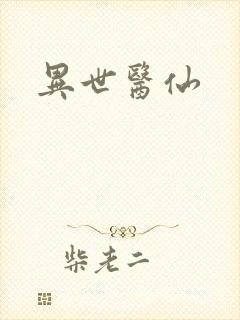 異世醫仙
柴老二